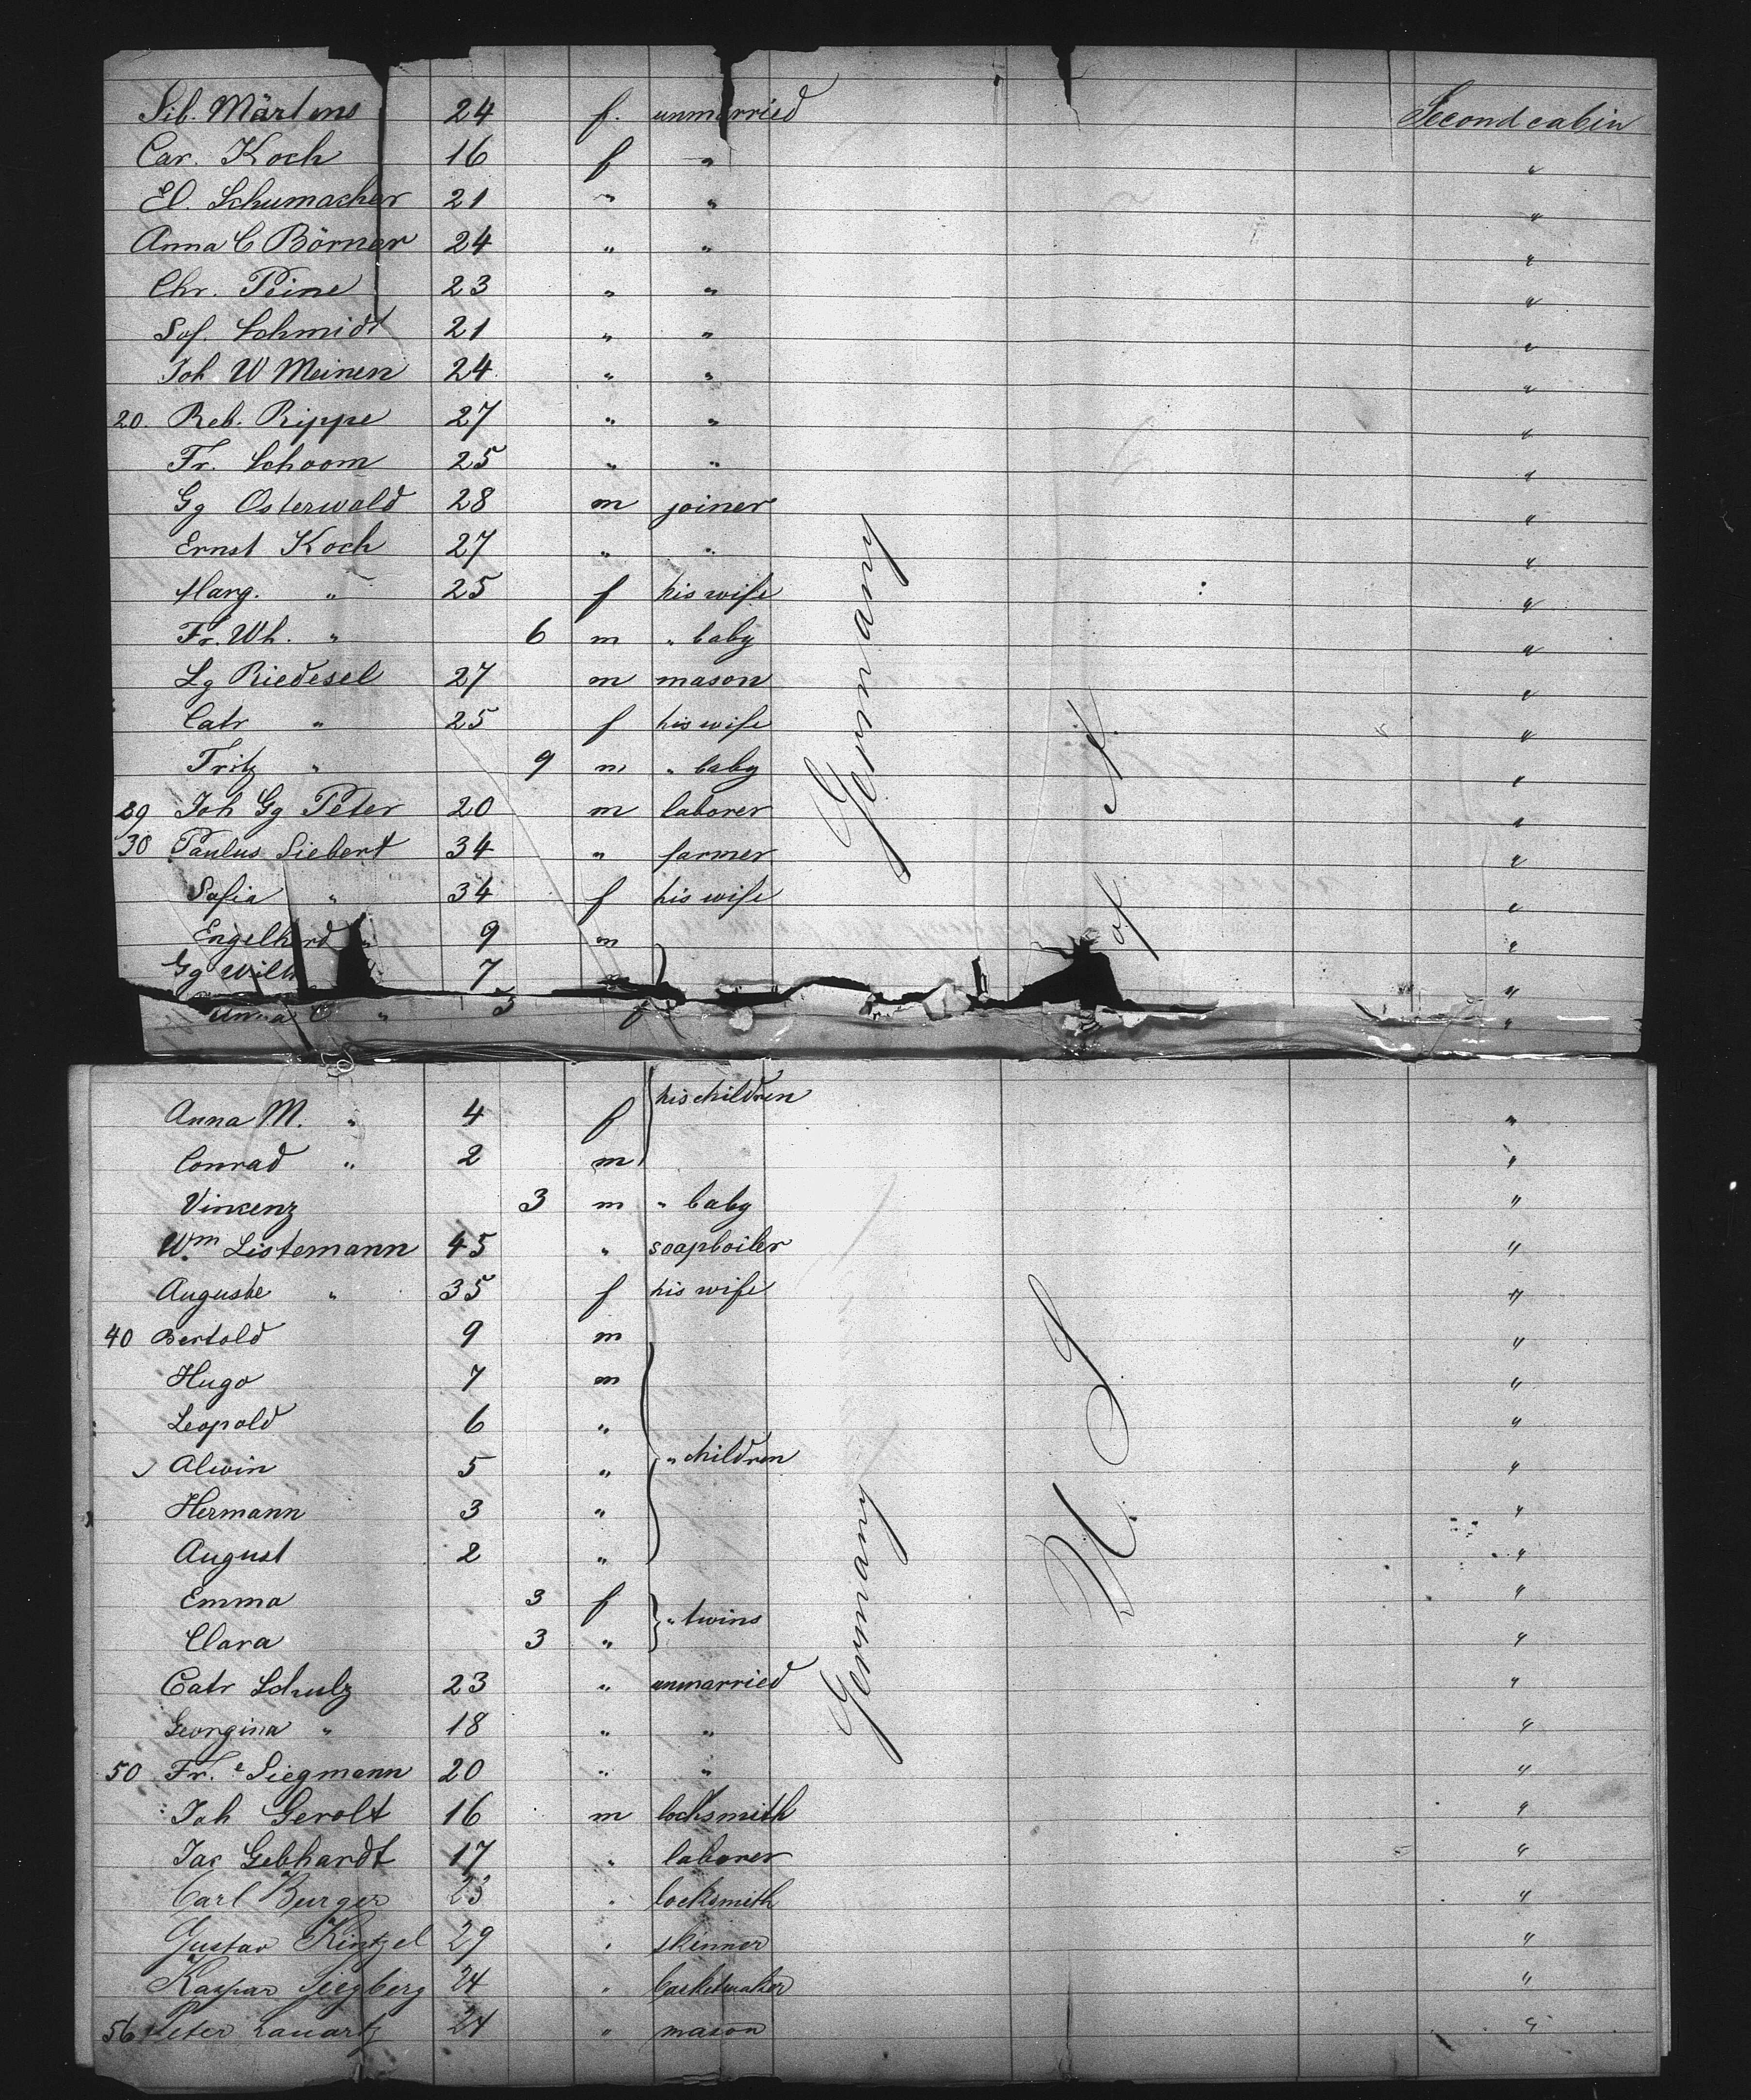 Sib. Märtens 24 f. unmarried Second cabin
Car. Koch 16 f " "
El. Schumacher 21 " " "
Anna C Börner 24 " " "
Chr. Peine 23 " " "
Sof. Schmidt 21 " " "
Joh. W Meinen 24 " " "
20. Reb. Rippe 27 " " "
Fr. Schoom 25 " " "
Gg Osterwald 28 m joiner "
Ernst Koch 27 " " "
Marg. " 25 f his wife "
Fr. Wh. " 6 m " baby "
Lg Riedesel 27 m mason "
Catr " 25 f his wife "
Fritz " 9 m " baby "
29 Joh Gg Peter 20 m laborer "
30 Paulus Siebert 34 " farmer "
Sofia " 34 f his wife "
Engelhard " 9 m "
Gg Wilh 7 "
Anna C " 5 f "
Germany
of A.
his children
Anna M. " 4 f "
Conrad " 2 m "
Vincenz 3 m " baby "
Wm Listemann 45 " soapboiler "
Auguste " 35 f his wife "
40 Bertold 9 m "
Hugo 7 m "
Leopold 6 " "
Alwin 5 " " children "
Hermann 3 " "
August 2 " "
Emma 3 f " twins "
Clara 3 " "
Catr Schulz 23 " unmarried "
Georgina " 18 " " "
50 Fr.e Siegmann 20 " " "
Joh Gerolt 16 m locksmith "
Jac Gebhardt 17 " laborer "
Carl Burger 23 " locksmith "
Gustav Kintzel 29 " skinner "
Kaspar Siegberg 24 " basketmaker "
56 Peter Lauartz 24 " mason "
Germany
U. S.